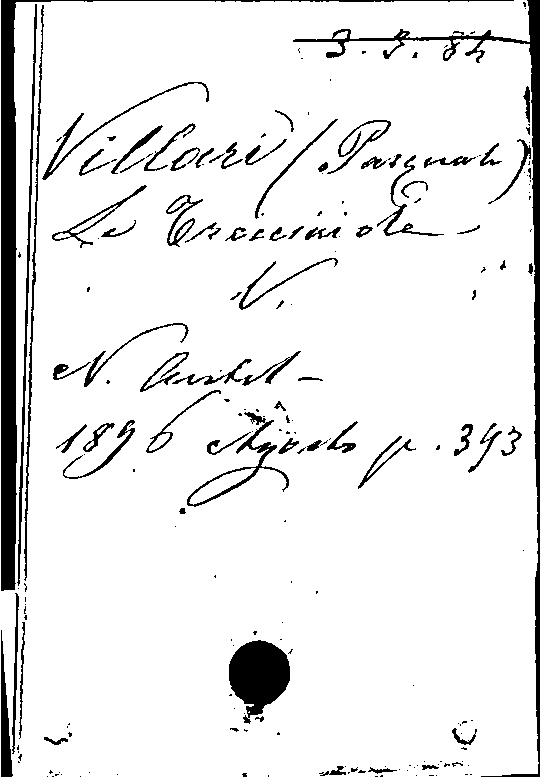 3. 3. 84
Villari (Pasquale)
Le Crociate
V.
N. Antol-
1896 Agosto p. 393